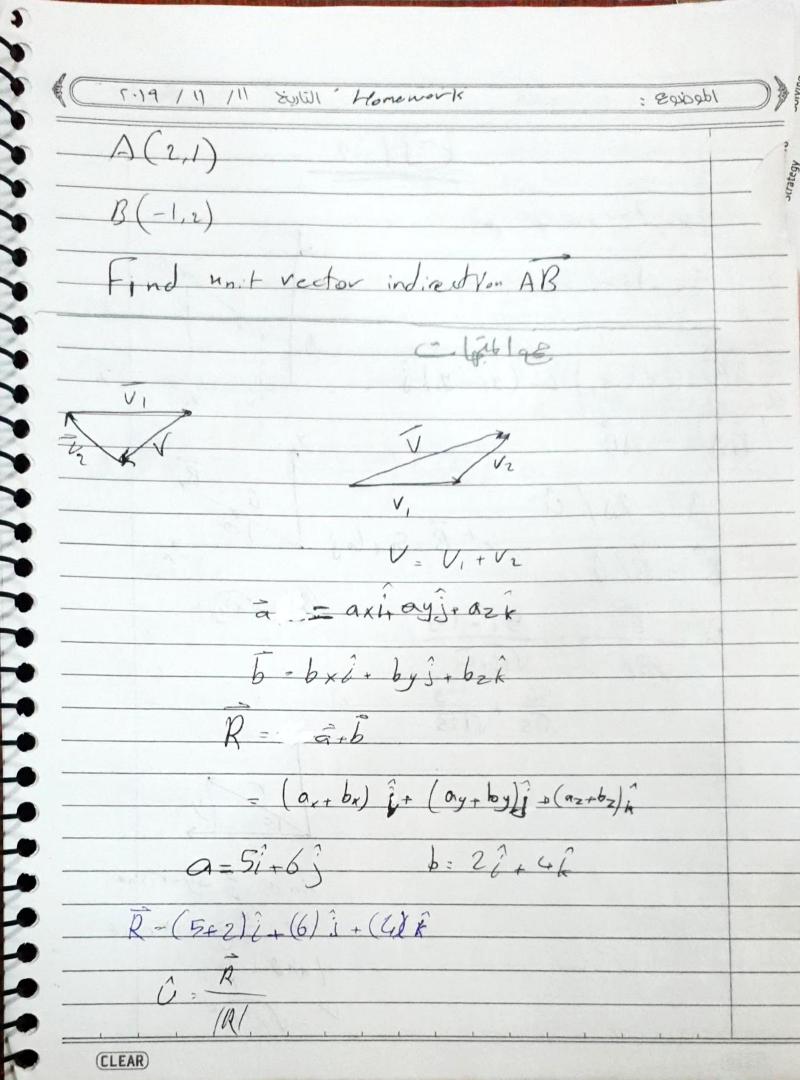 الموضوع : Homework التاريخ ١١/ ١١ / ٢٠١٩
A(2,1)
B(-1,2)
Find unit vector indirection AB
V₁
V₂ V
V
V₂
V₁
V = V₁ + V₂
a⃗ = axî + ayĵ + azk̂
b⃗ = bxî + byĵ + bzk̂
R⃗ = a⃗+b⃗
= (ax + bx) î + (ay + by)ĵ + (az+bz)k̂
a = 5î + 6ĵ b = 2î + 4k̂
R⃗ = (5+2)î + (6)ĵ + (4)k̂
Û = R⃗
|R|
CLEAR